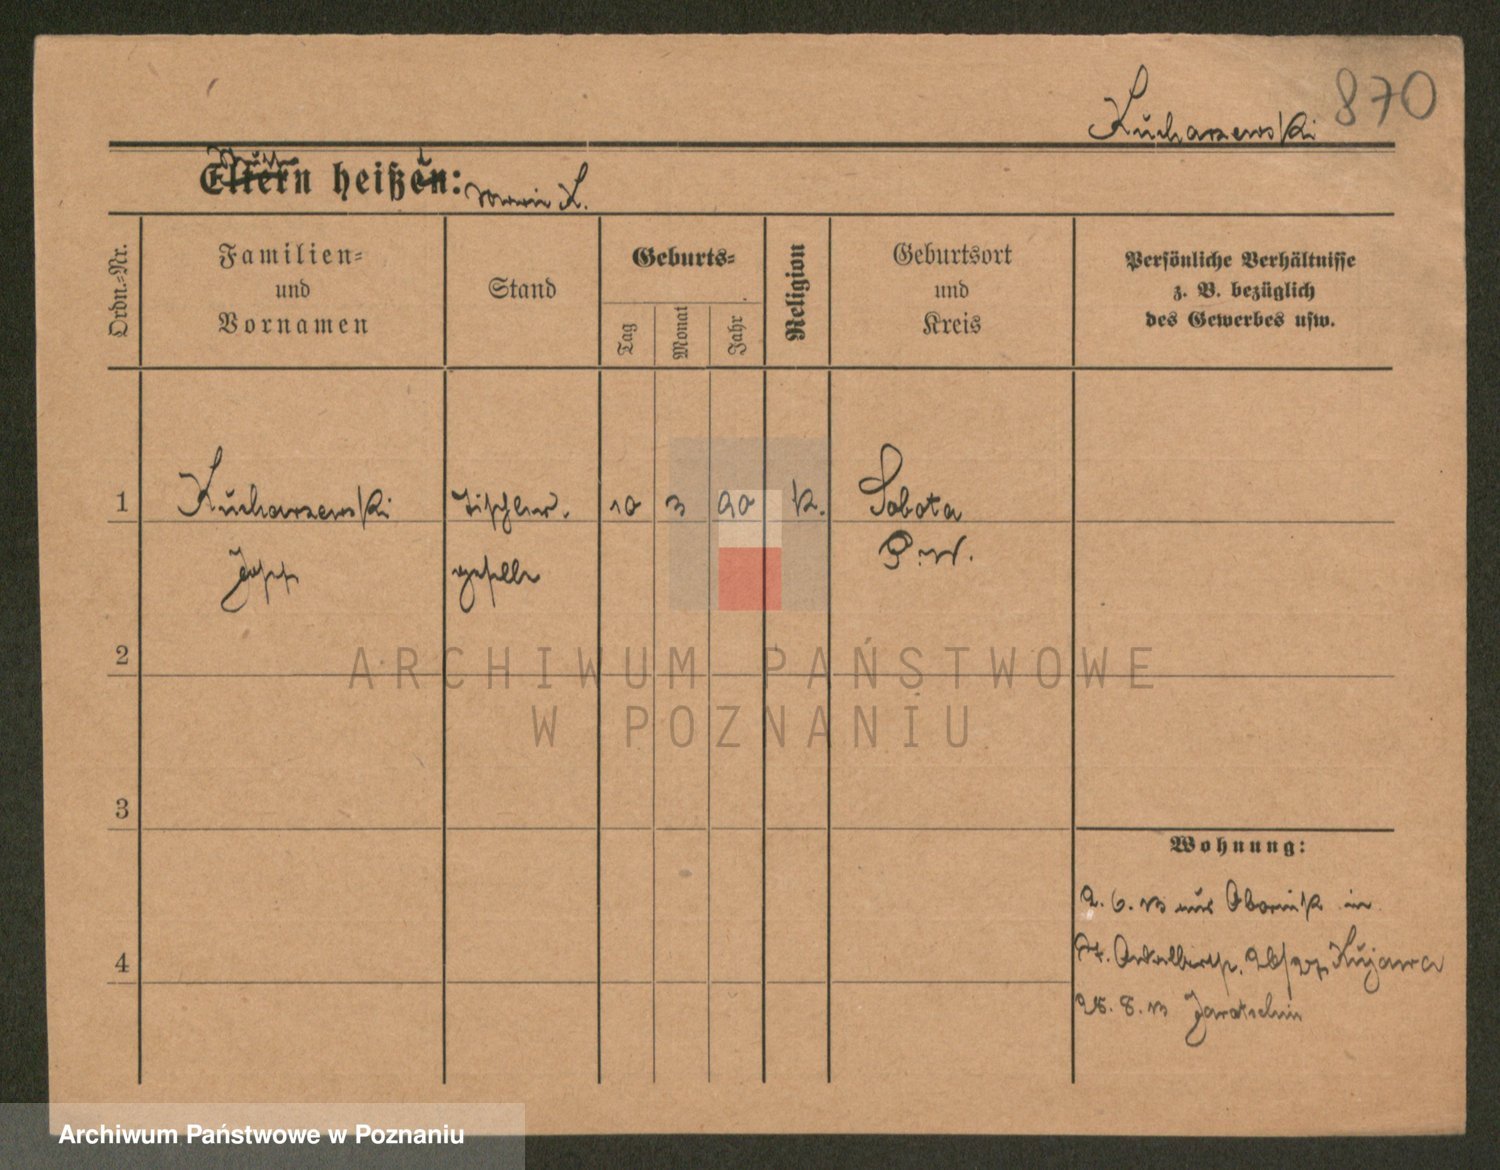 Kucharzewski 870
Eltern heißen: Marie K.
Ordn.-Nr.
Familien-
und
Vornamen
Stand
Geburts-
Tag
Monat
Jahr
Religion
Geburtsort
und
Kreis
Persönliche Verhältnisse
z. B. bezüglich
des Gewerbes usw.
1 Kucharzewski Tischler- 10 3 90 k. Sobota
Josef geselle P.W.
2
3
4
ARCHIWUM PAŃSTWOWE
W POZNANIU
Wohnung:
2. 6. 13 aus Obornik in
St. Adalbertstr. 26/27 Kujawa
25. 8. 13 Jarotschin
Archiwum Państwowe w Poznaniu